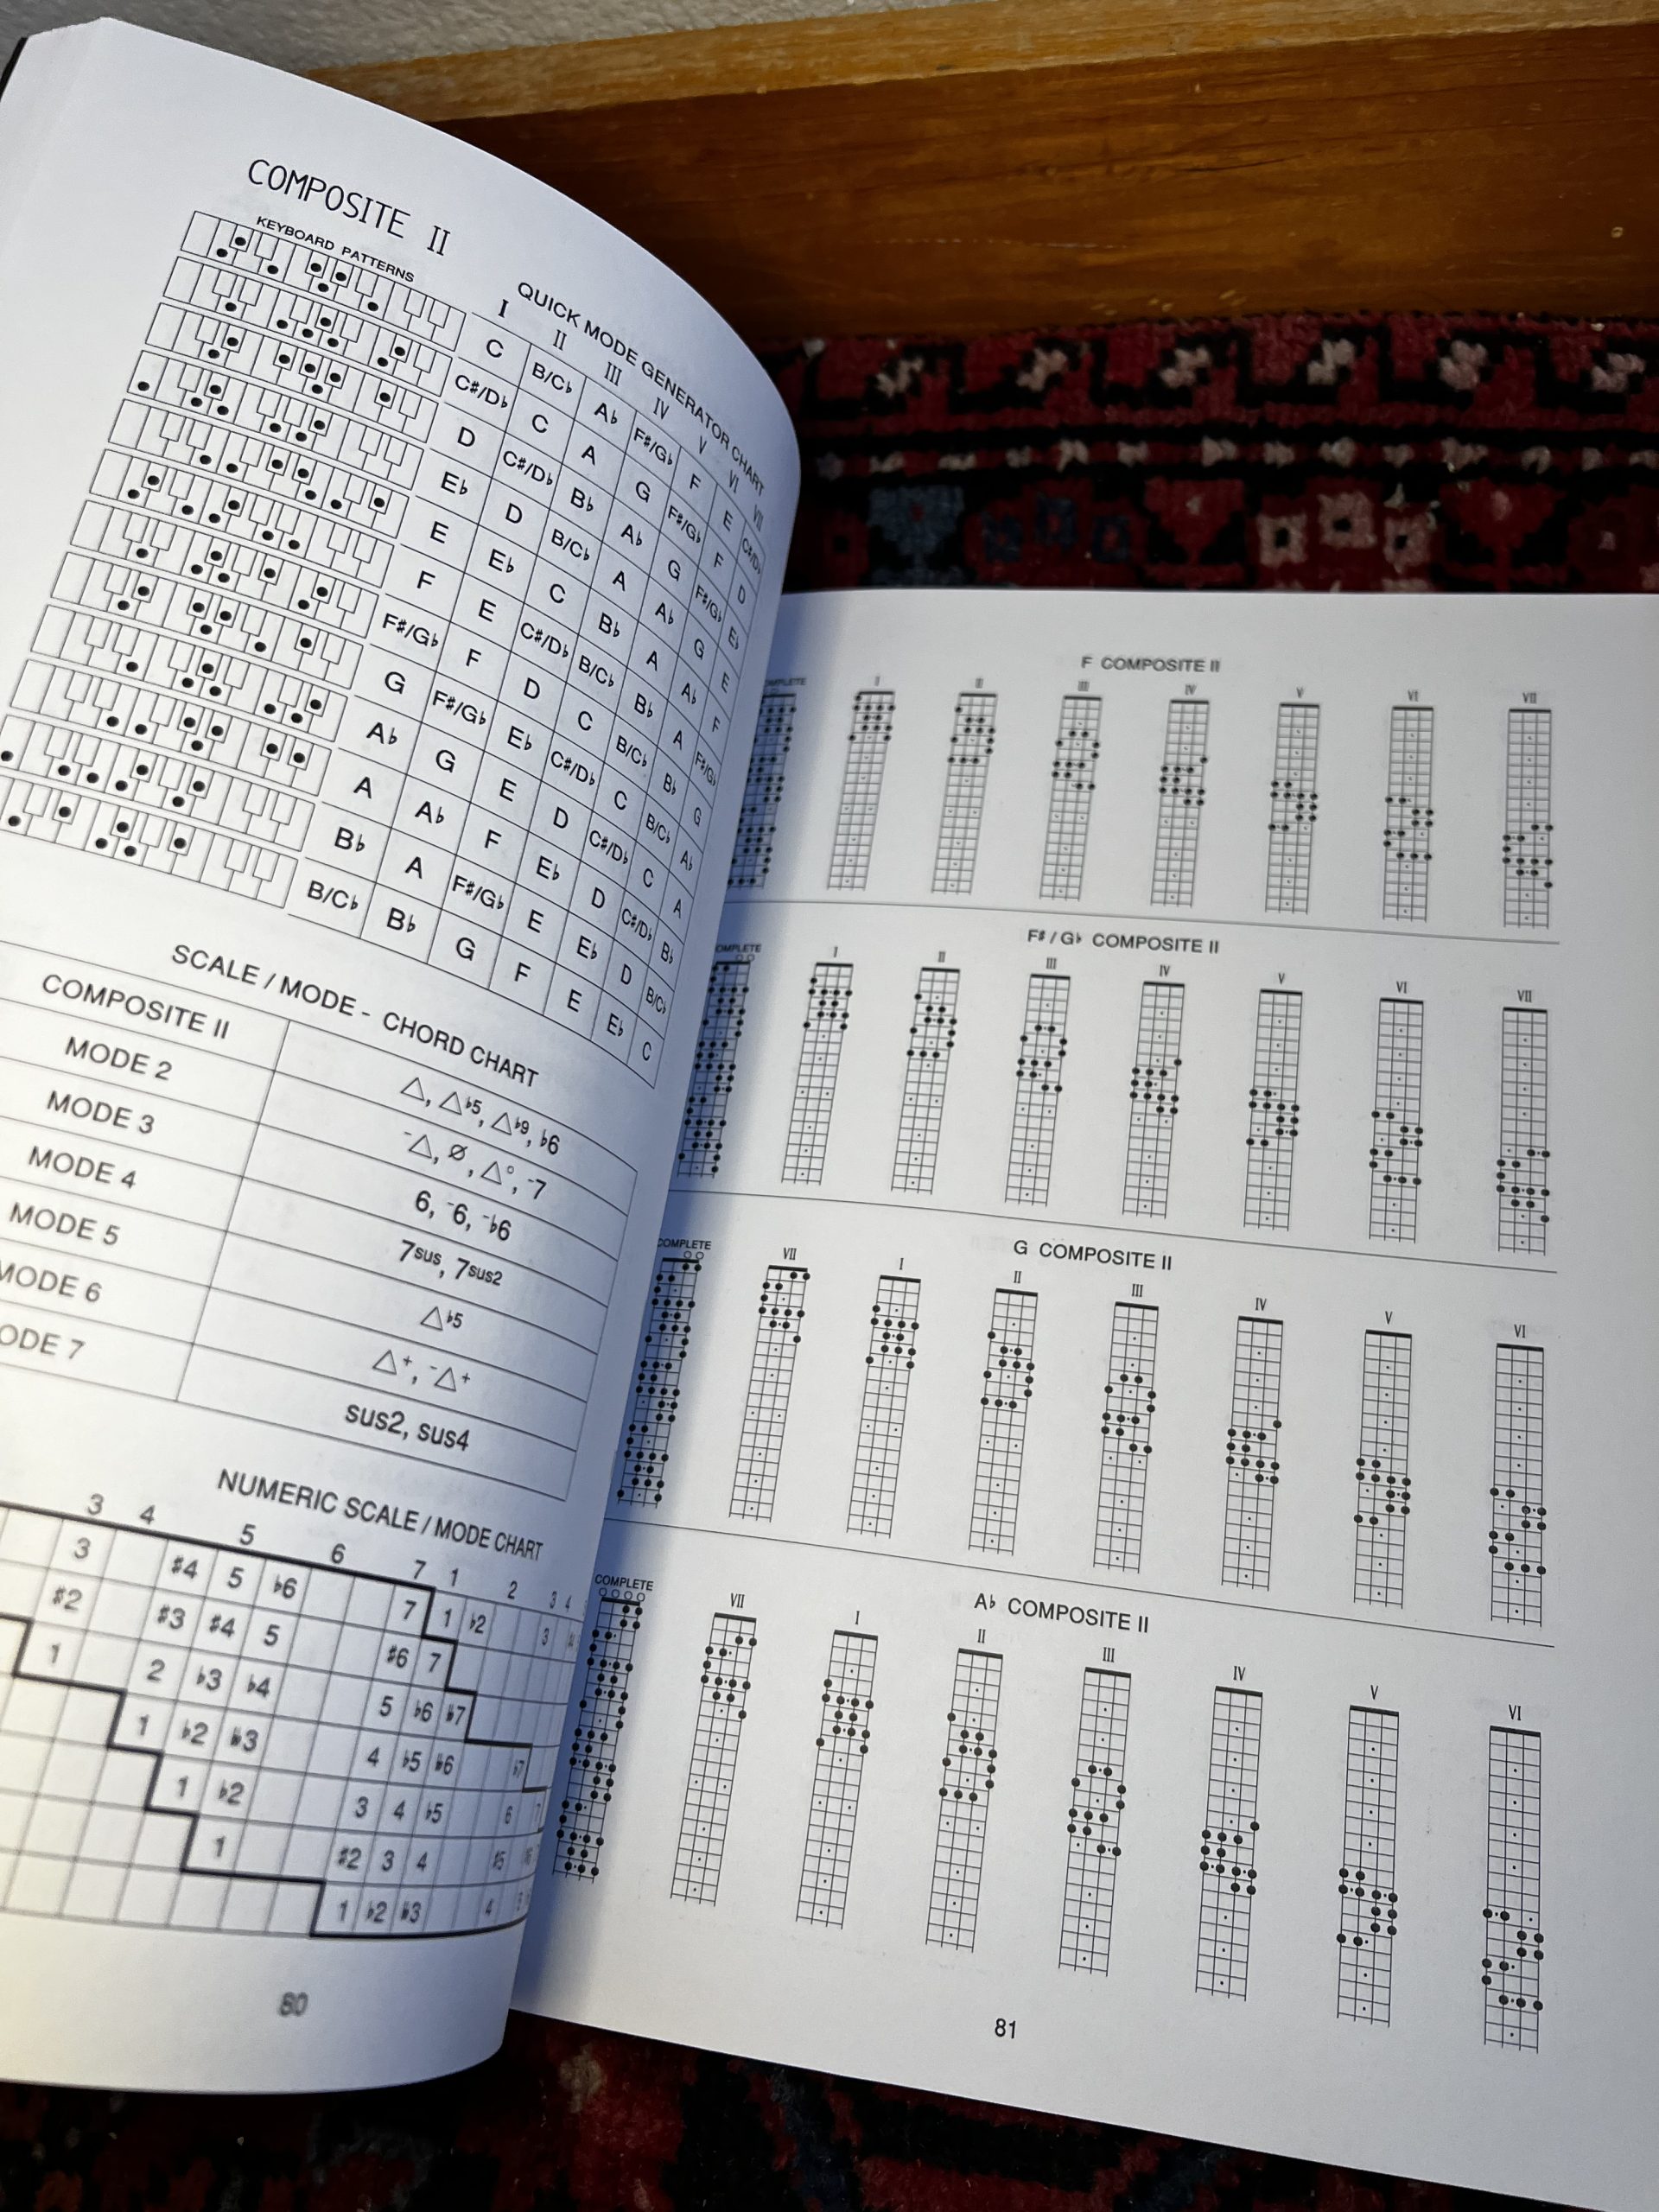 COMPOSITE II
KEYBOARD PATTERNS
QUICK MODE GENERATOR CHART
I II III IV V VI VII
C B/C♭ A♭ F♯/G♭ F E C♯/D♭
C♯/D♭ C A G F♯/G♭ F D
D C♯/D♭ B♭ A♭ G F♯/G♭ E♭
E♭ D B/C♭ A A♭ G E
E E♭ C B♭ A A♭ F
F E C♯/D♭ B/C♭ B♭ A F♯/G♭
F♯/G♭ F D C B/C♭ B♭ G
G F♯/G♭ E♭ C♯/D♭ C B/C♭ A♭
A♭ G E D C♯/D♭ C A
A A♭ F E♭ D C♯/D♭ B♭
B♭ A F♯/G♭ E E♭ D B/C♭
B/C♭ B♭ G F E E♭ C
SCALE / MODE - CHORD CHART
COMPOSITE II △, △♭5, △♭9, ♭6
MODE 2 -△, ø, △°, -7
MODE 3 6, -6, -♭6
MODE 4 7sus, 7sus2
MODE 5 △♭5
MODE 6 △+, -△+
MODE 7 sus2, sus4
NUMERIC SCALE / MODE CHART
3 4 5 6 7 1 2 3 4
3 ♯4 5 ♭6 7 1 ♭2 3
♯2 ♯3 ♯4 5 ♯6 7
1 2 ♭3 ♭4 5 ♭6 𝄫7
1 ♭2 𝄫3 4 ♭5 𝄫6 ♭7
1 ♭2 3 4 ♭5 6 7
1 ♯2 3 4 ♯5
1 ♭2 𝄫3 4
80
F COMPOSITE II
I II III IV V VI VII
F♯ / G♭ COMPOSITE II
I II III IV V VI VII
G COMPOSITE II
COMPLETE VII I II III IV V VI
A♭ COMPOSITE II
COMPLETE VII I II III IV V VI
81